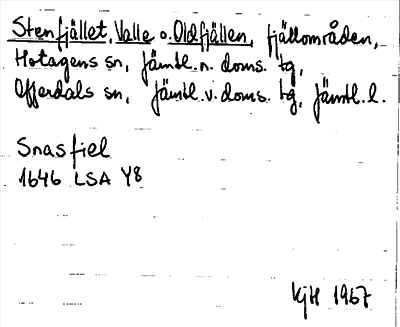 Stenfjället, Valle o. Oldfjällen, fjällområden,
Hotagens sn, Jämtl. n. doms. tg,
Offerdals sn, Jämtl. v. doms. tg, Jämtl. l.
Snasfiel
1646 LSA Y8
KjH 1967